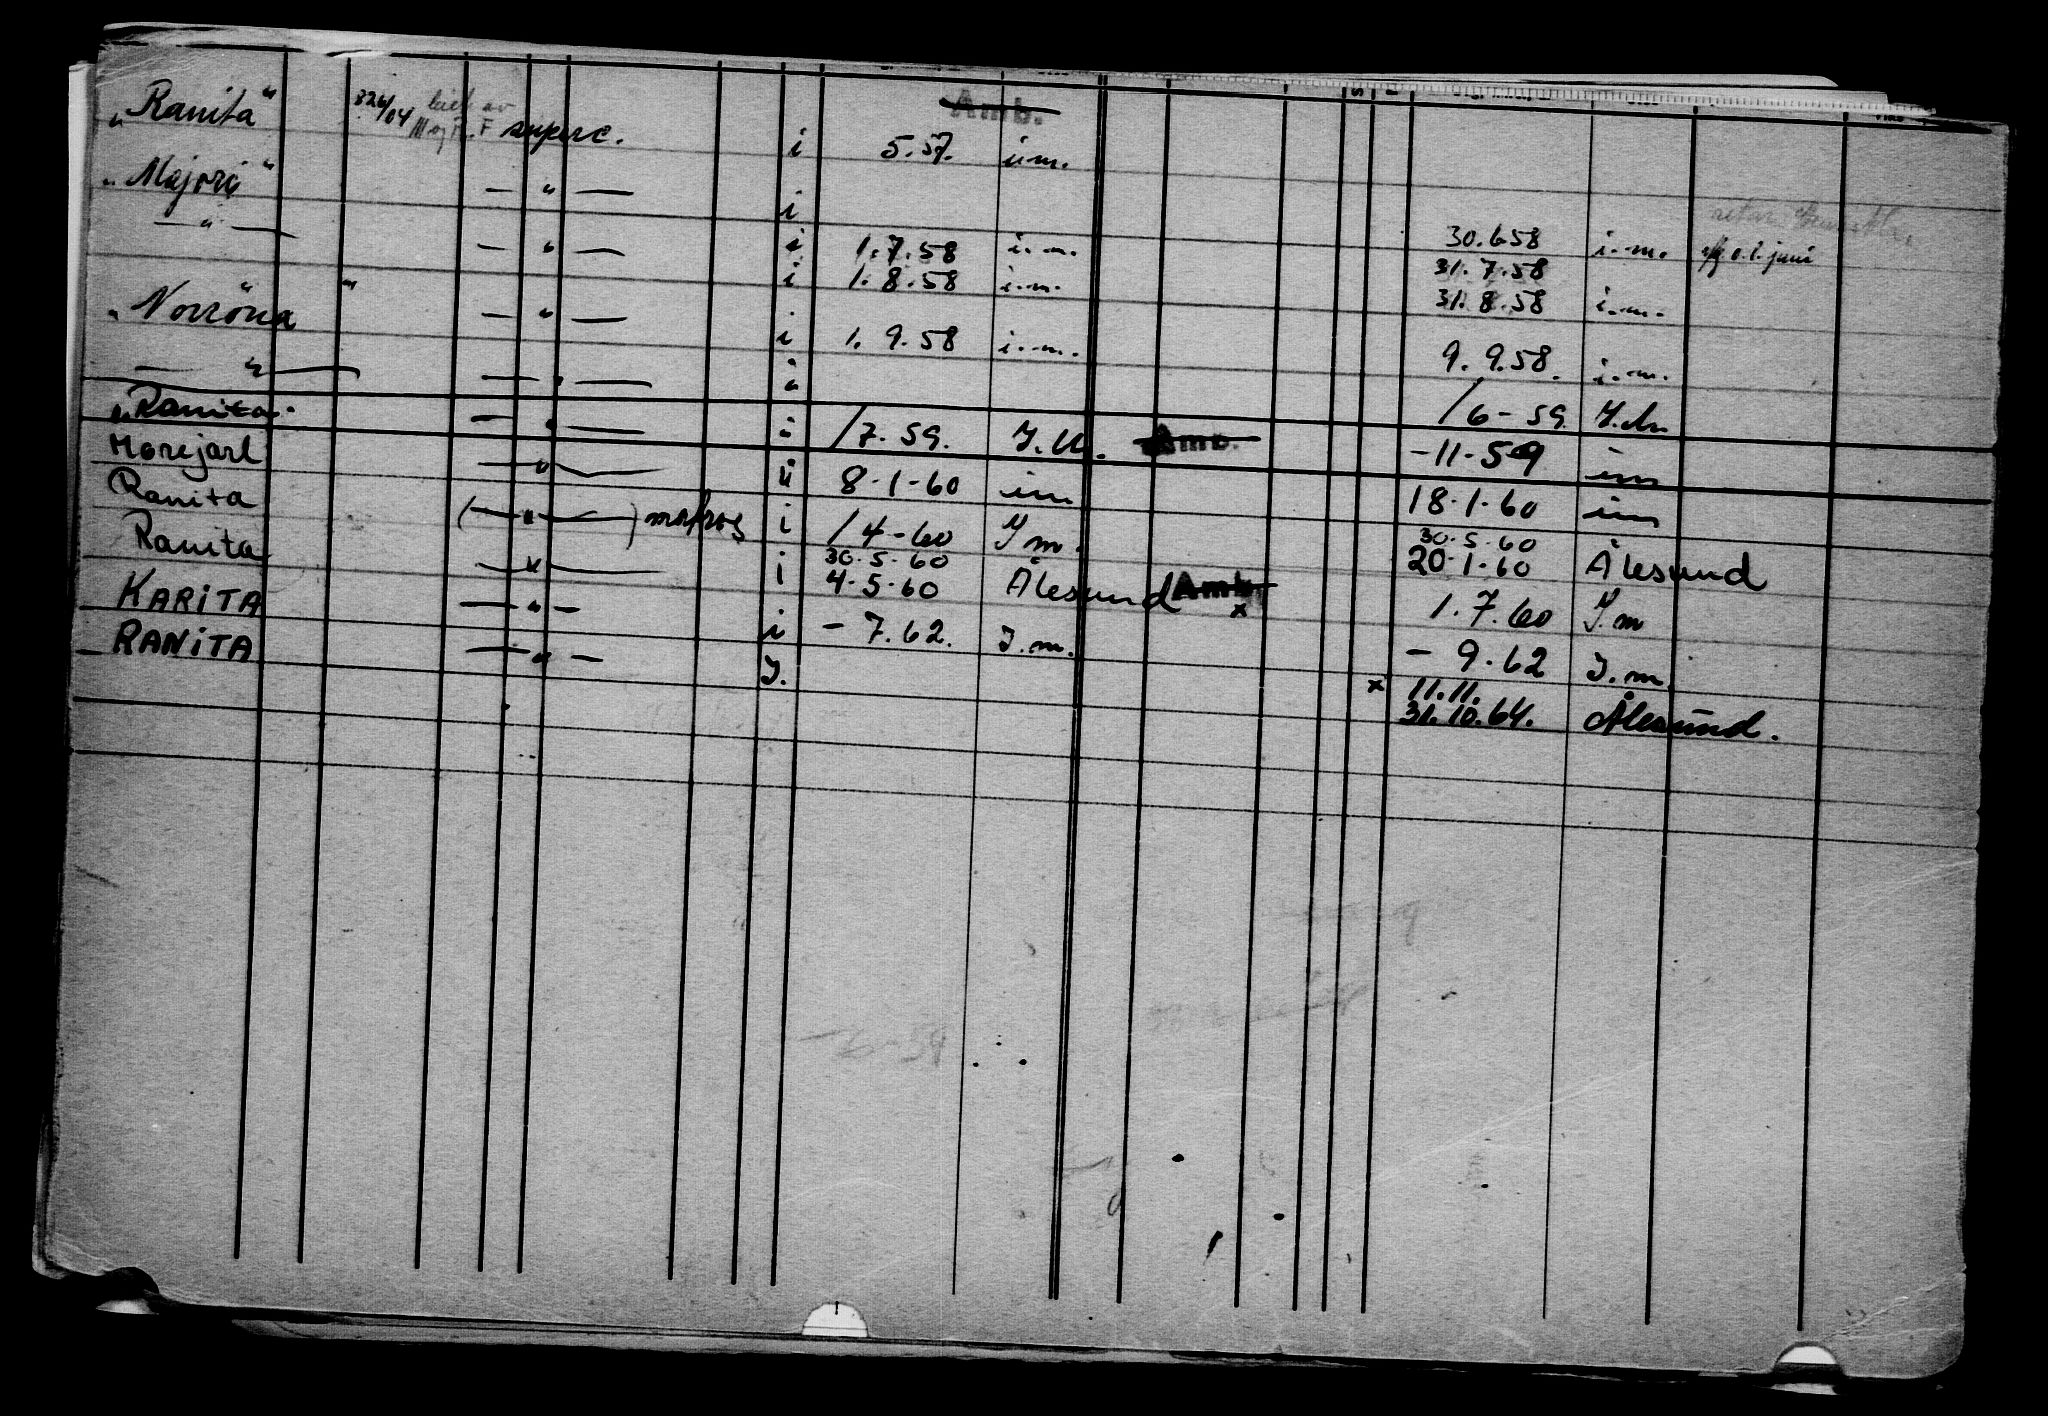 Amb.
„Ranita" 326/04 superc. i 5.57. i.m.
„Majori" — " — i 30.6.58 i.m. juni
— " — — " — i 1.7.58 i.m. 31.7.58
i 1.8.58 i.m. 31.8.58 i.m.
„Norröna" — " — i 1.9.58 i.m. 9.9.58. i.m.
— " — — " — i /6-59 I.m.
„Ranita" — " — i /7.59. I.M. Amb. -11-59 im
Morejarl — " — ii 8-1-60 im 18-1-60 im
Ranita (— " —) i /4-60 I m. 30.5.60 20.1.60 Ålesund
Ranita — " — i 30.5.60 4.5.60 Ålesund Amb. x 1.7.60 I.m
KARITA — " — i - 7.62. I.m. - 9.62 I.m
RANITA — " — I. x 11.11. 31.10.64. Ålesund.
-6-59